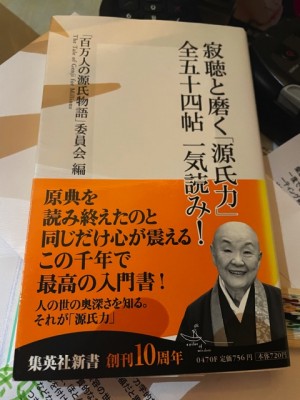 寂聴と磨く「源氏力」
全五十四帖 一気読み!
「百万人の源氏物語」委員会 編
The Tale of Genji for Millions
原典を
読み終えたのと
同じだけ心が震える
この千年で
最高の入門書!
人の世の奥深さを知る。
それが「源氏力」
集英社新書 創刊10周年
0470F 定価756円 本体720円